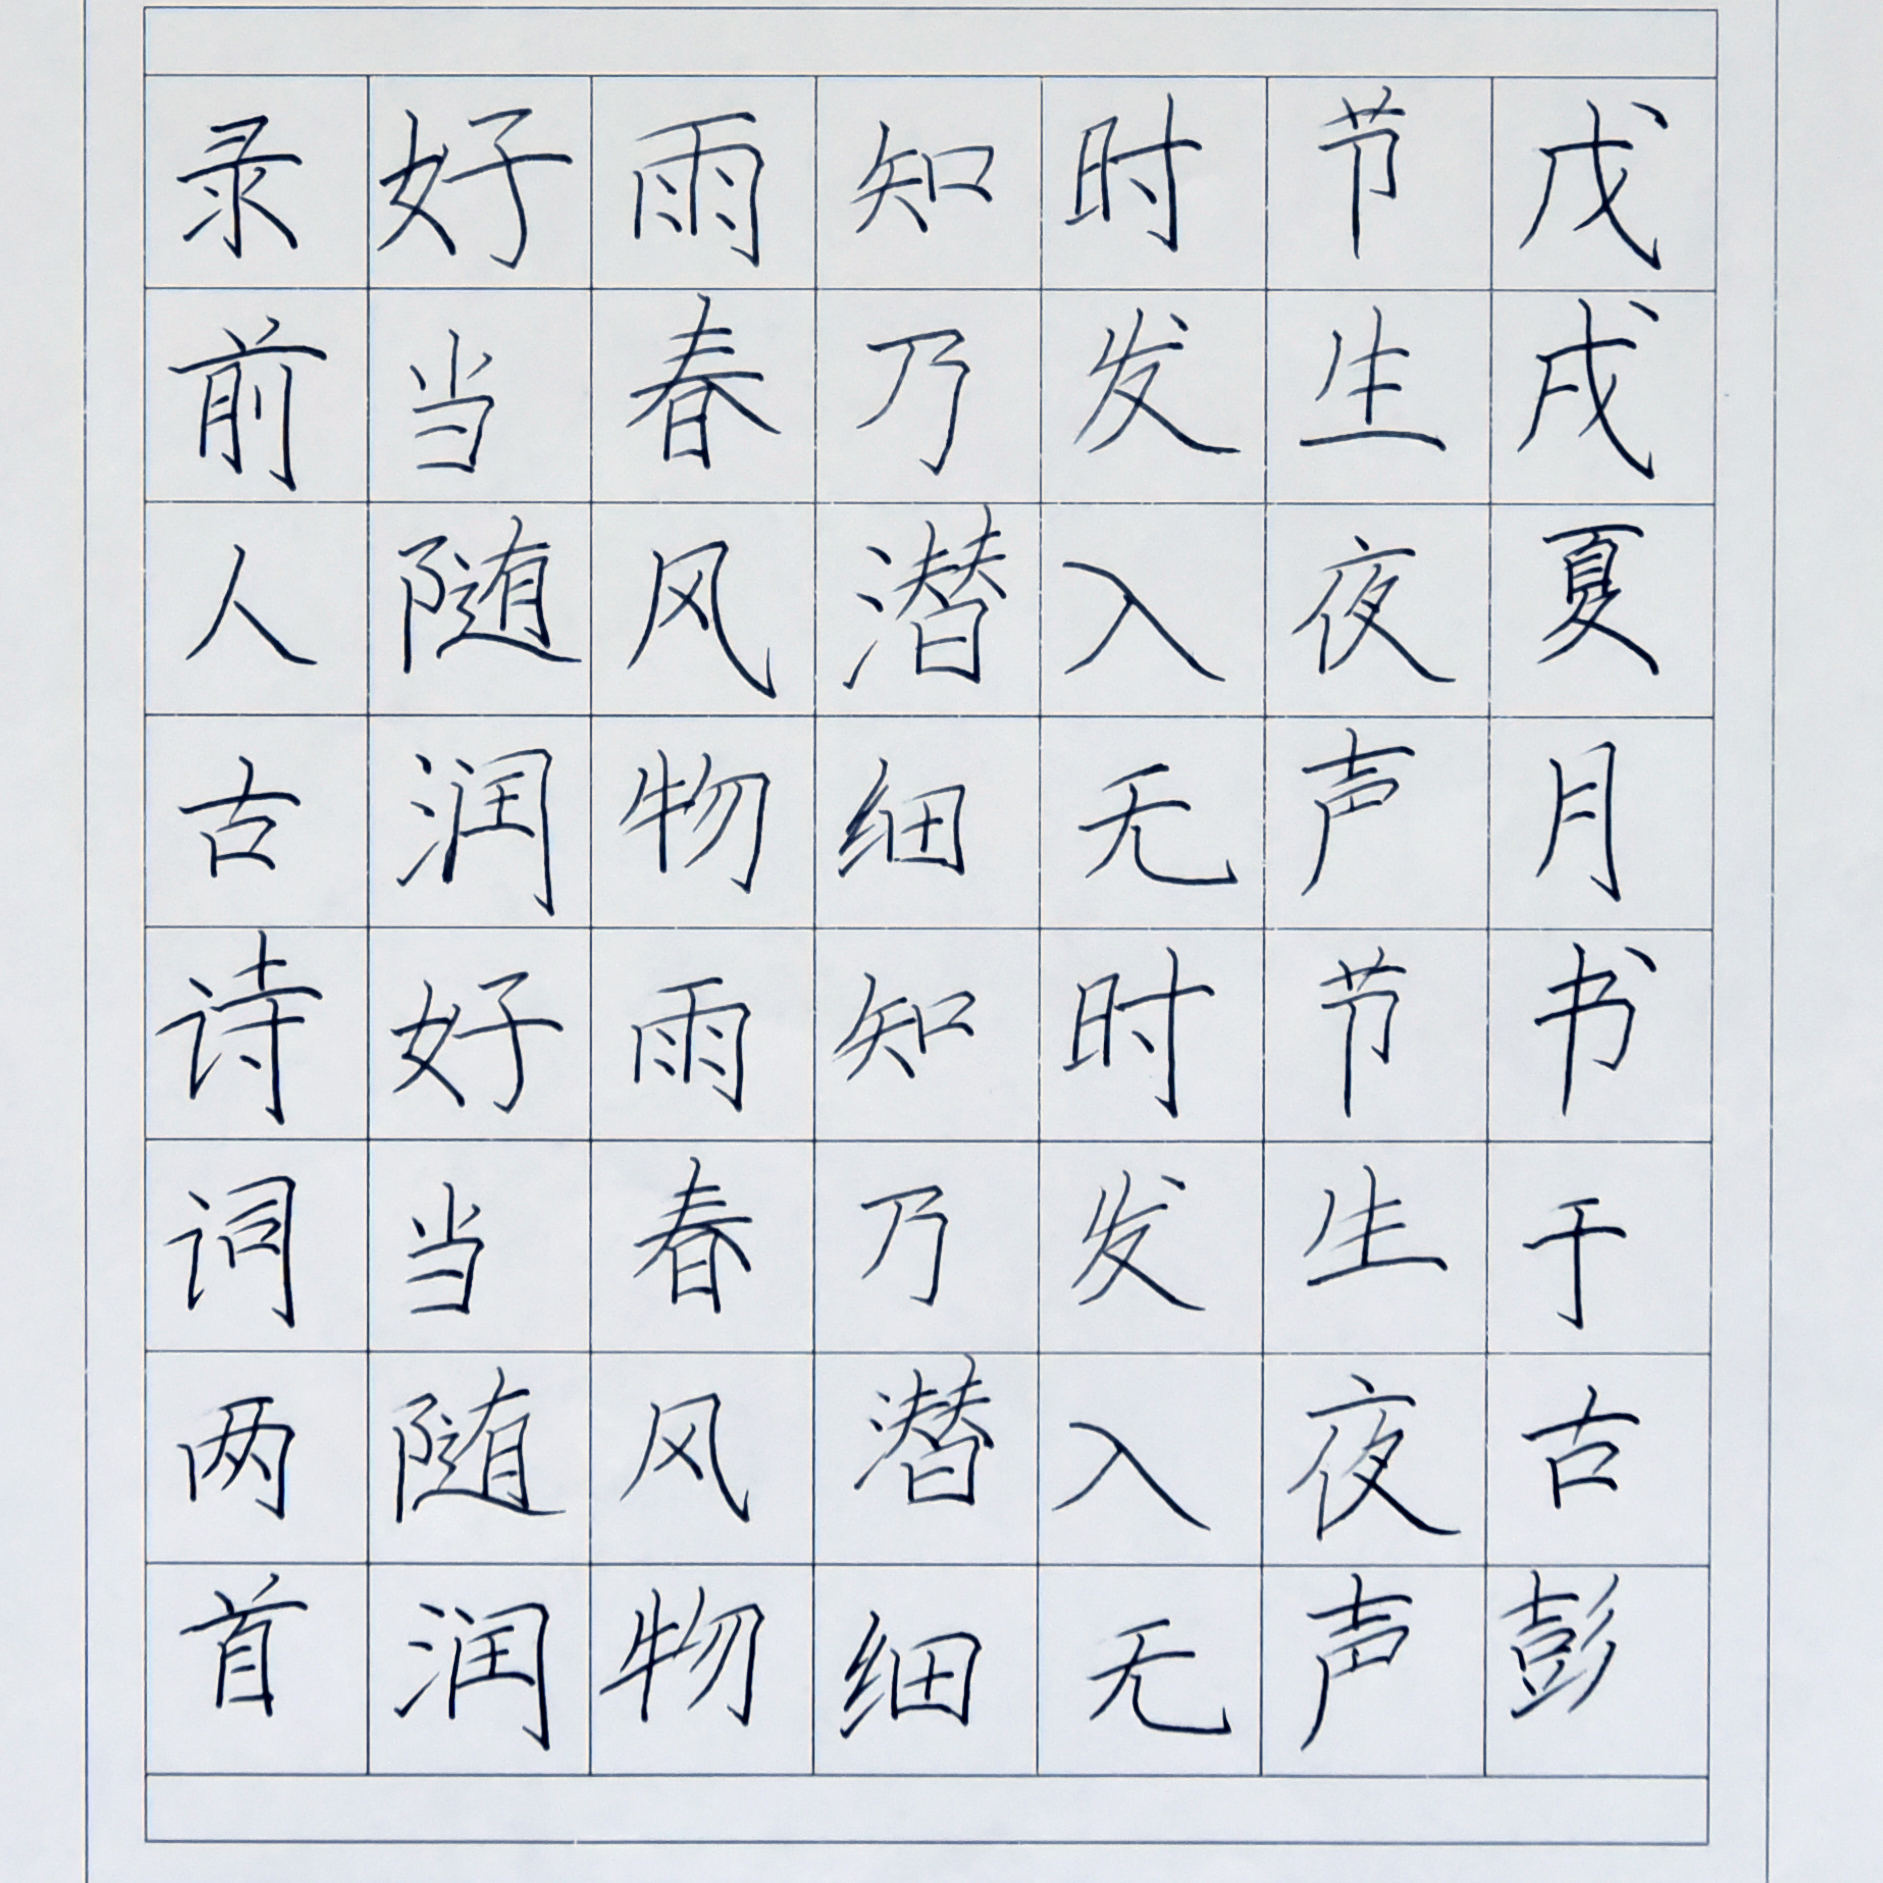 录前人古诗词两首
好雨知时节
当春乃发生
随风潜入夜
润物细无声
好雨知时节
当春乃发生
随风潜入夜
润物细无声
戊戌夏月书于古彭